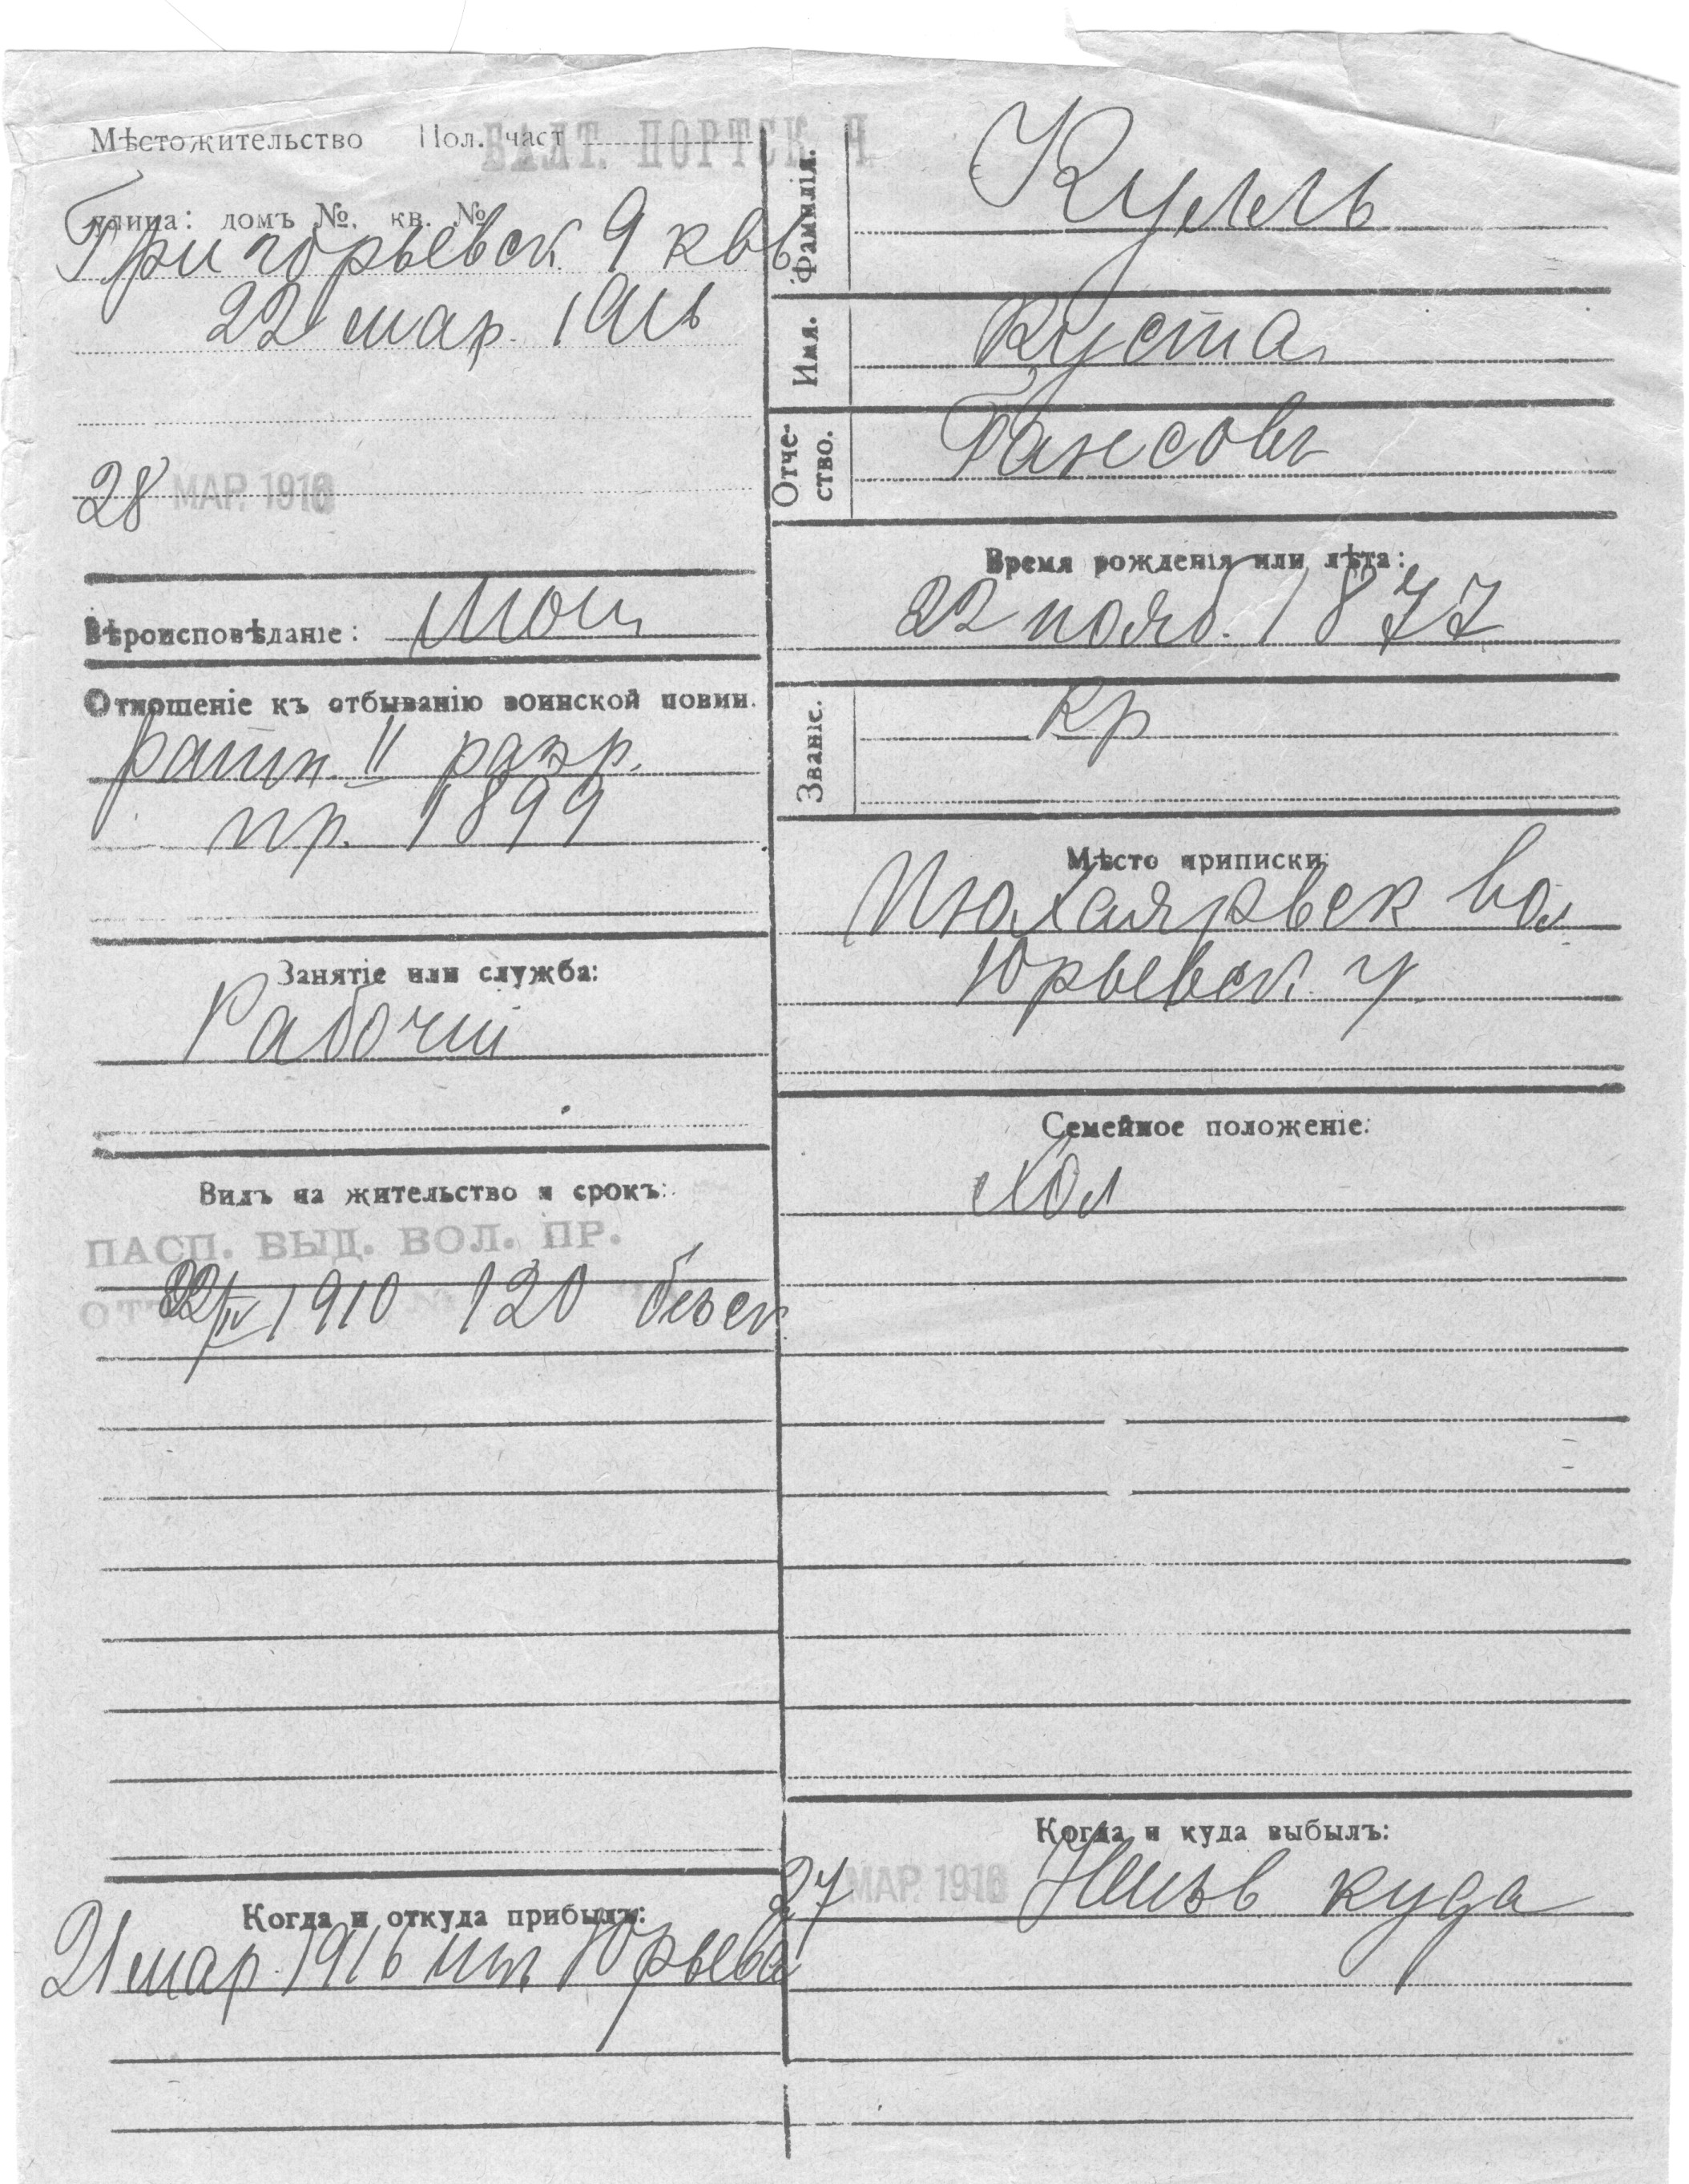 Мѣстожительство Пол. част БАЛТ. ПОРТСК. Ч.
улица: домъ №, кв. №
Григорьевск. 9 кв 6
22 мар. 1916
28 МАР. 1916
Вѣроисповѣданіе:
Отношеніе къ отбыванію воинской повин.
ратн. II разр.
пр. 1899
Занятіе или служба:
Рабочій
Видъ на жительство и срокъ:
ПАСП. ВЫД. ВОЛ. ПР.
22/IV 1910 120 безср
Когда и откуда прибылъ:
21 мар. 1916 изъ Юрьева
Фамилія. Кулль
Имя. Куста
Отчество. Гансовъ
Время рожденія или лѣта:
22 нояб. 1877
Званіе. кр
Мѣсто приписки:
Пюхаярвск вол
Юрьевск. у.
Семейное положеніе:
хол
Когда и куда выбылъ:
27 МАР. 1916 куда